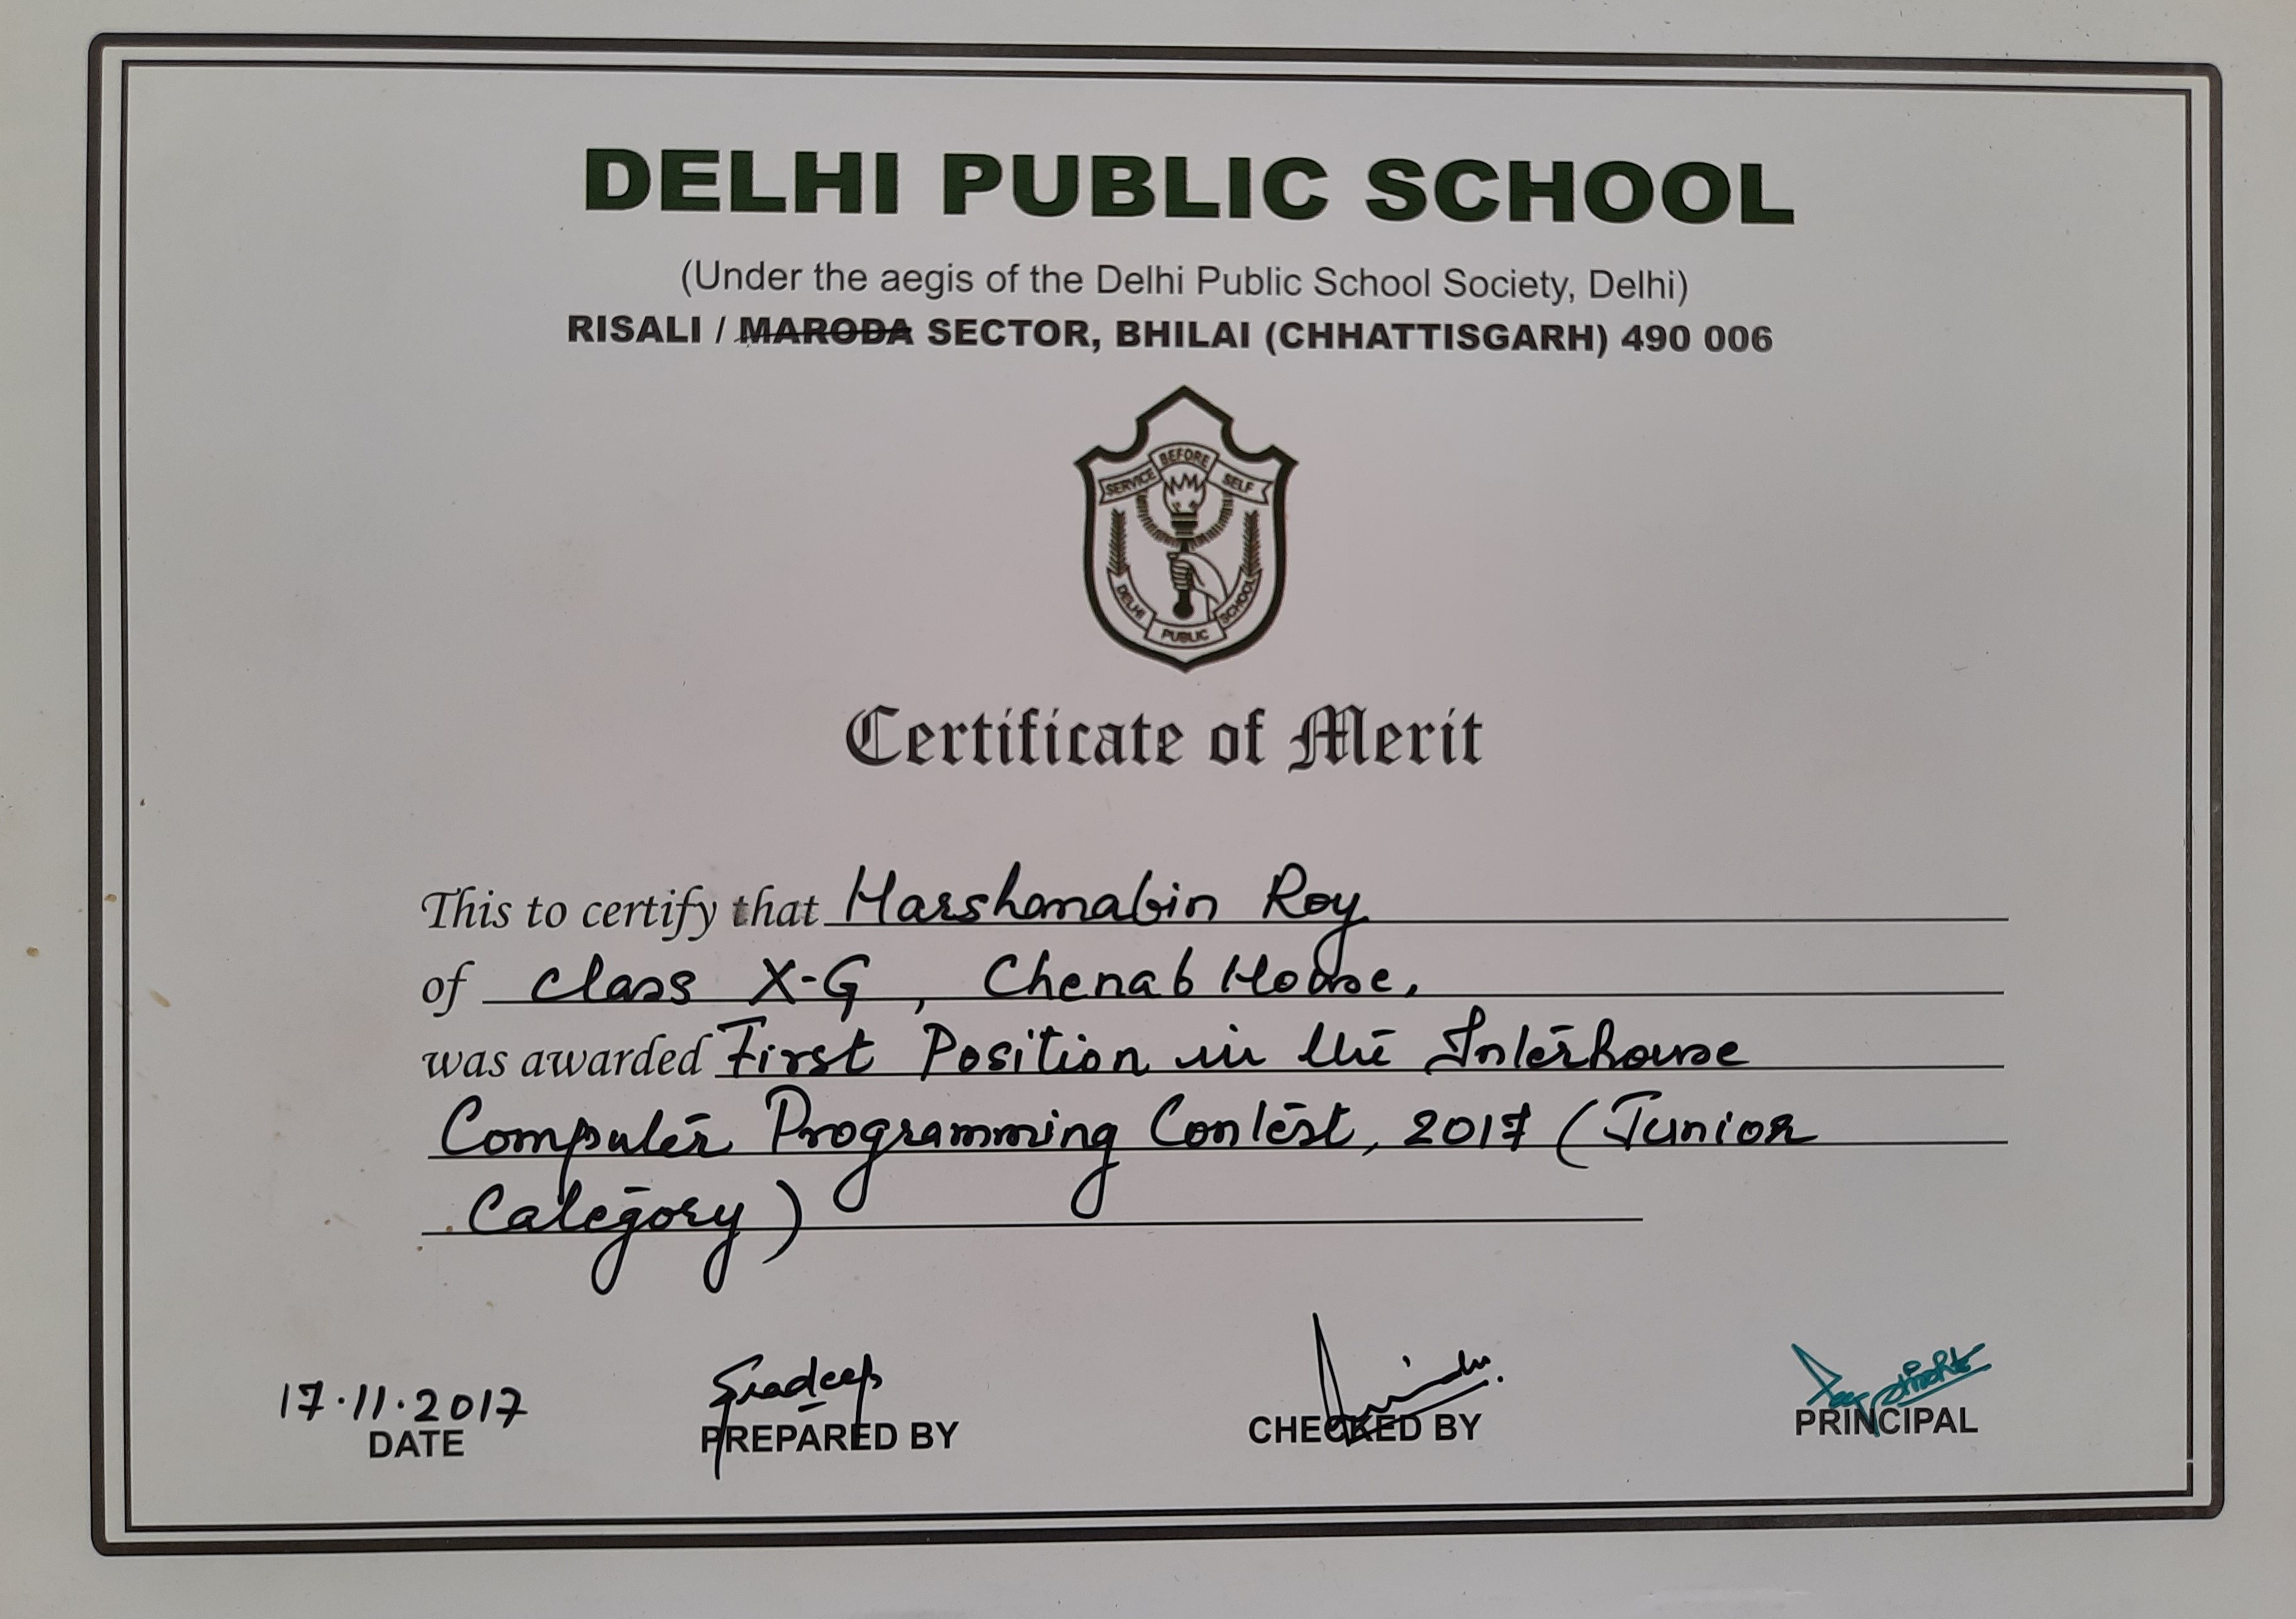 DELHI PUBLIC SCHOOL
(Under the aegis of the Delhi Public School Society, Delhi)
RISALI / MARODA SECTOR, BHILAI (CHHATTISGARH) 490 006
SERVICE BEFORE SELF
DELHI PUBLIC SCHOOL
Certificate of Merit
This to certify that Harshanabin Roy
of class X-G, Chenab House,
was awarded First Position in the Interhouse
Computer Programming Contest, 2017 (Junior
Category)
17.11.2017 Pradeep
DATE PREPARED BY CHECKED BY PRINCIPAL